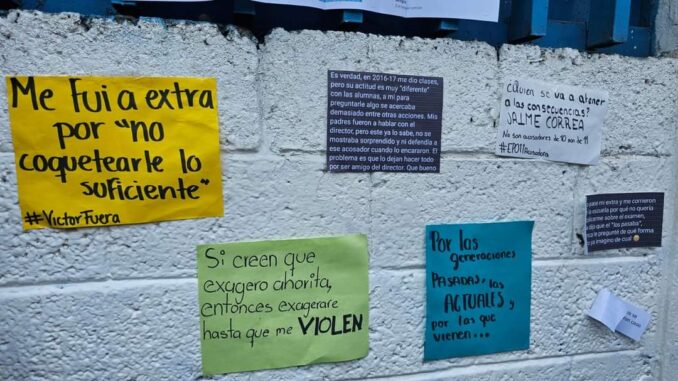 Me fui a extra
por "no
coquetearle lo
suficiente"
#VictorFuera
Es verdad, en 2016-17 me dio clases,
pero su actitud es muy "diferente"
con las alumnas, a mi para
preguntarle algo se acercaba
demasiado entre otras acciones. Mis
padres fueron a hablar con el
director, pero este ya lo sabe, no se
mostraba sorprendido y ni defendía a
ese acosador cuando lo encararon. El
problema es que lo dejan hacer todo
por ser amigo del director. Que bueno
¿Quien se va a atener
a las consecuencias?
JAIME CORREA
No son acusadores de 10 son de 11
pase mi extra y me corrieron
la escuela por qué no quería
sobre el examen,
dijo que el "los pasaba",
le pregunté de qué forma
imagino de cual
Si creen que
exagero ahorita,
entonces exagerare
hasta que me VIOLEN
Por las
generaciones
PASADAS, las
ACTUALES y
por las que
vienen...